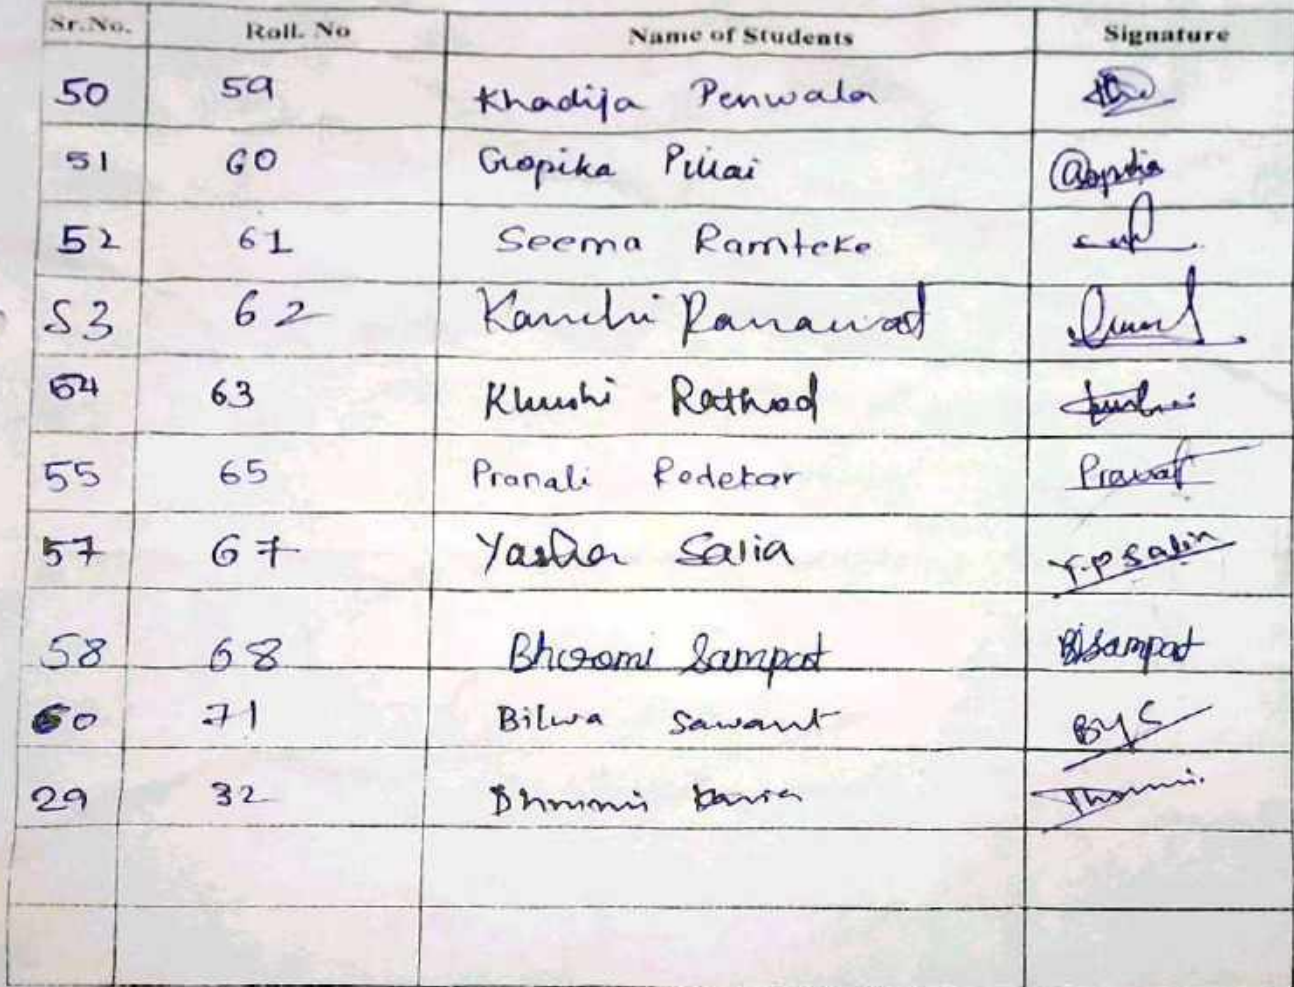 Sr.No. Roll. No Name of Students Signature
50 59 Khadija Penwala
51 60 Gopika Pillai Gopika
52 61 Seema Ramteke
53 62 Kanchi Ranawat
54 63 Khushi Rathod
55 65 Pranali Redekar
57 67 Salia Y.P Salia
58 68 Bhoomi Sampat B Sampat
60 71 Bilwa Sawant BYS
29 32